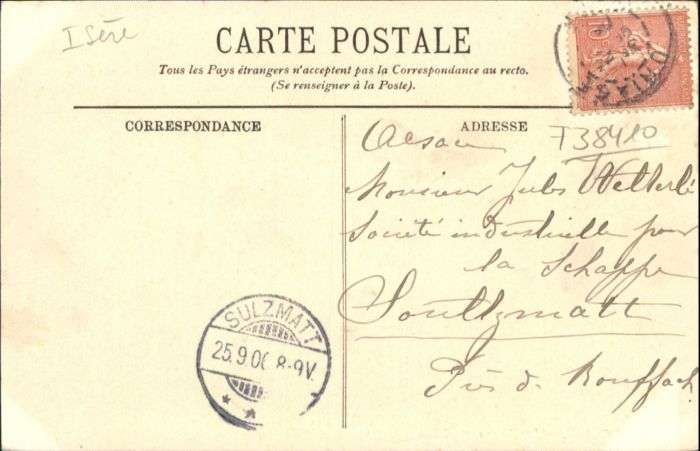 Isère
CARTE POSTALE
Tous les Pays étrangers n'acceptent pas la Correspondance au recto.
(Se renseigner à la Poste).
CORRESPONDANCE
ADRESSE
T38410
Alsace
Monsieur Jules Wetterlé
Société industrielle pour
la Schappe
Soultzmatt
Près de Rouffach
SULZMATT
25.9.06 8-9V.
10